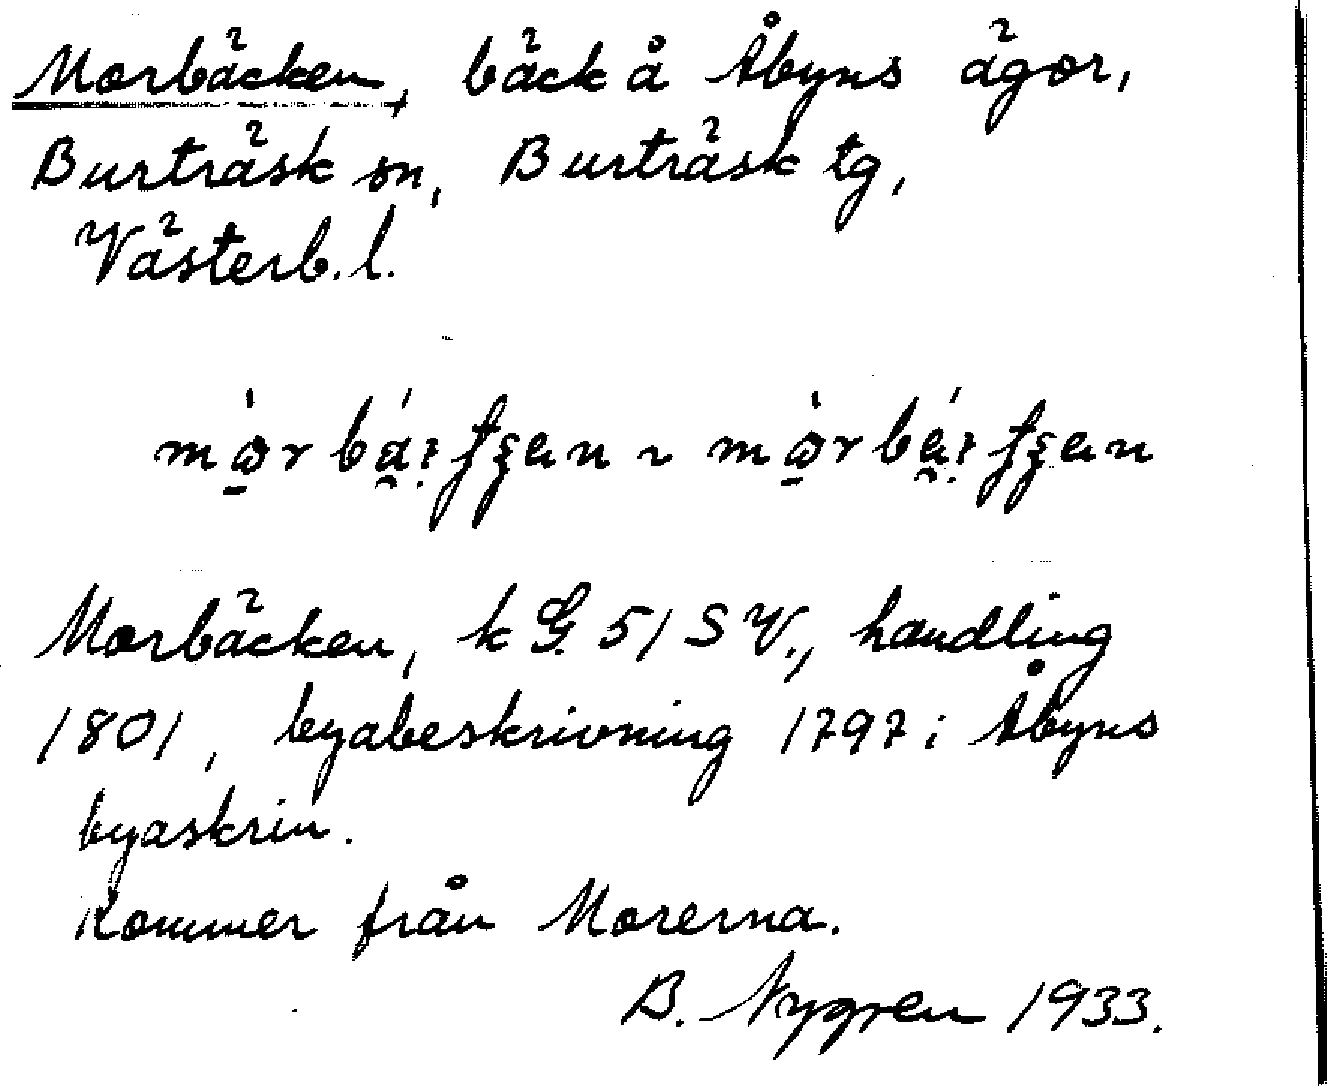 Morbäcken, bäck å Åbyns ägor,
Burträsk sn, Burträsk tg,
Västerb. l.
Morbäcken, k G. 51 S V., handling
1801, byabeskrivning 1797 i Åbyns
byaskrin.
Kommer från Morerna.
B. Nygren 1933.